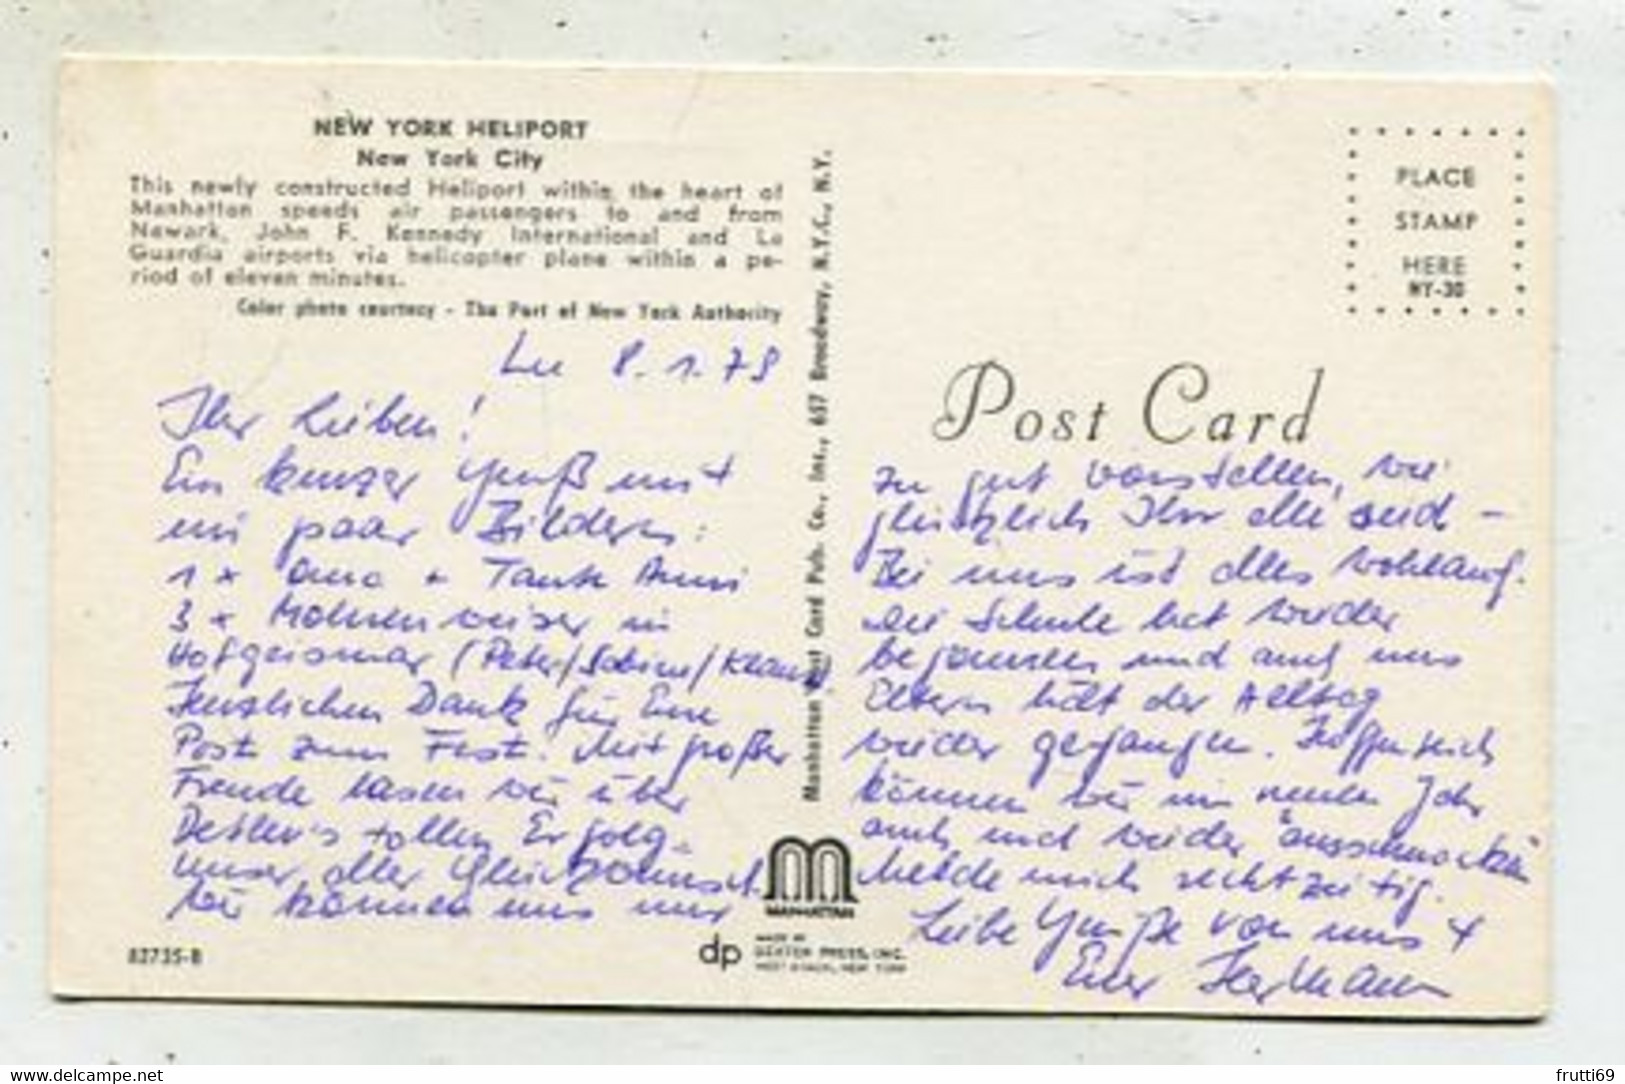 NEW YORK HELIPORT
New York City
This newly constructed Heliport within the heart of
Manhattan speeds air passengers to and from
Newark, John F. Kennedy International and La
Guardia airports via helicopter plane within a pe-
riod of eleven minutes.
Color photo courtesy - The Port of New York Authority
8.1.79
Ihr Lieben!
Ein kurzer Gruß mit
ein paar Bildern:
1 x Oma + Tante Anni
3 x in
Hofgeismar (Peter/Sabine/Klaus)
Herzlichen Dank für Eure
Post zum Fest. Mit großer
Freude lasen wir über
Detlev's tollen Erfolg.
Unser aller Glückwunsch.
Wir können uns nur
Manhattan Post Card Pub. Co., Inc., 657 Broadway, N.Y.C., N.Y.
MANHATTAN
82735-B
dp
MADE BY
DEXTER PRESS, INC.
WEST NYACK, NEW YORK
PLACE
STAMP
HERE
NY-30
Post Card
zu gut vorstellen, wie
glücklich Ihr alle seid -
Bei uns ist alles wohlauf.
Die Schule hat wieder
begonnen und auch uns
Eltern hält der Alltag
wieder gefangen. Hoffentlich
können wir im neuen Jahr
auch mal wieder
Melde mich rechtzeitig.
Liebe Grüße von uns 4
Euer Hermann
delcampe.net
frutti69